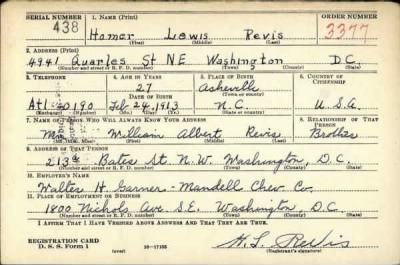 SERIAL NUMBER 1. NAME (Print) ORDER NUMBER
438 Homer Lewis Revis 3377
(First) (Middle) (Last)
2. ADDRESS (Print)
4941 Quarles St NE Washington D.C.
(Number and street or R. F. D. number) (Town) (County) (State)
3. TELEPHONE 4. AGE IN YEARS 5. PLACE OF BIRTH 6. COUNTRY OF CITIZENSHIP
27 Asheville
DATE OF BIRTH (Town or county)
Atl 0190 Feb 24, 1913 N.C. U.S.A.
(Exchange) (Number) (Mo.) (Day) (Yr.) (State or country)
7. NAME OF PERSON WHO WILL ALWAYS KNOW YOUR ADDRESS 8. RELATIONSHIP OF THAT PERSON
Mr William Albert Revis Brother
(Mr., Mrs., Miss) (First) (Middle) (Last)
9. ADDRESS OF THAT PERSON
213 Bates St. N.W. Washington, D.C.
(Number and street or R. F. D. number) (Town) (County) (State)
10. EMPLOYER'S NAME
Walter H Garner - Mandell Chev. Co.
11. PLACE OF EMPLOYMENT OR BUSINESS
1800 Nichols Ave S.E. Washington, D.C.
(Number and street or R. F. D. number) (Town) (County) (State)
I AFFIRM THAT I HAVE VERIFIED ABOVE ANSWERS AND THAT THEY ARE TRUE.
REGISTRATION CARD
D. S. S. Form 1 (over) 16—17105 H. L. Revis
(Registrant's signature)